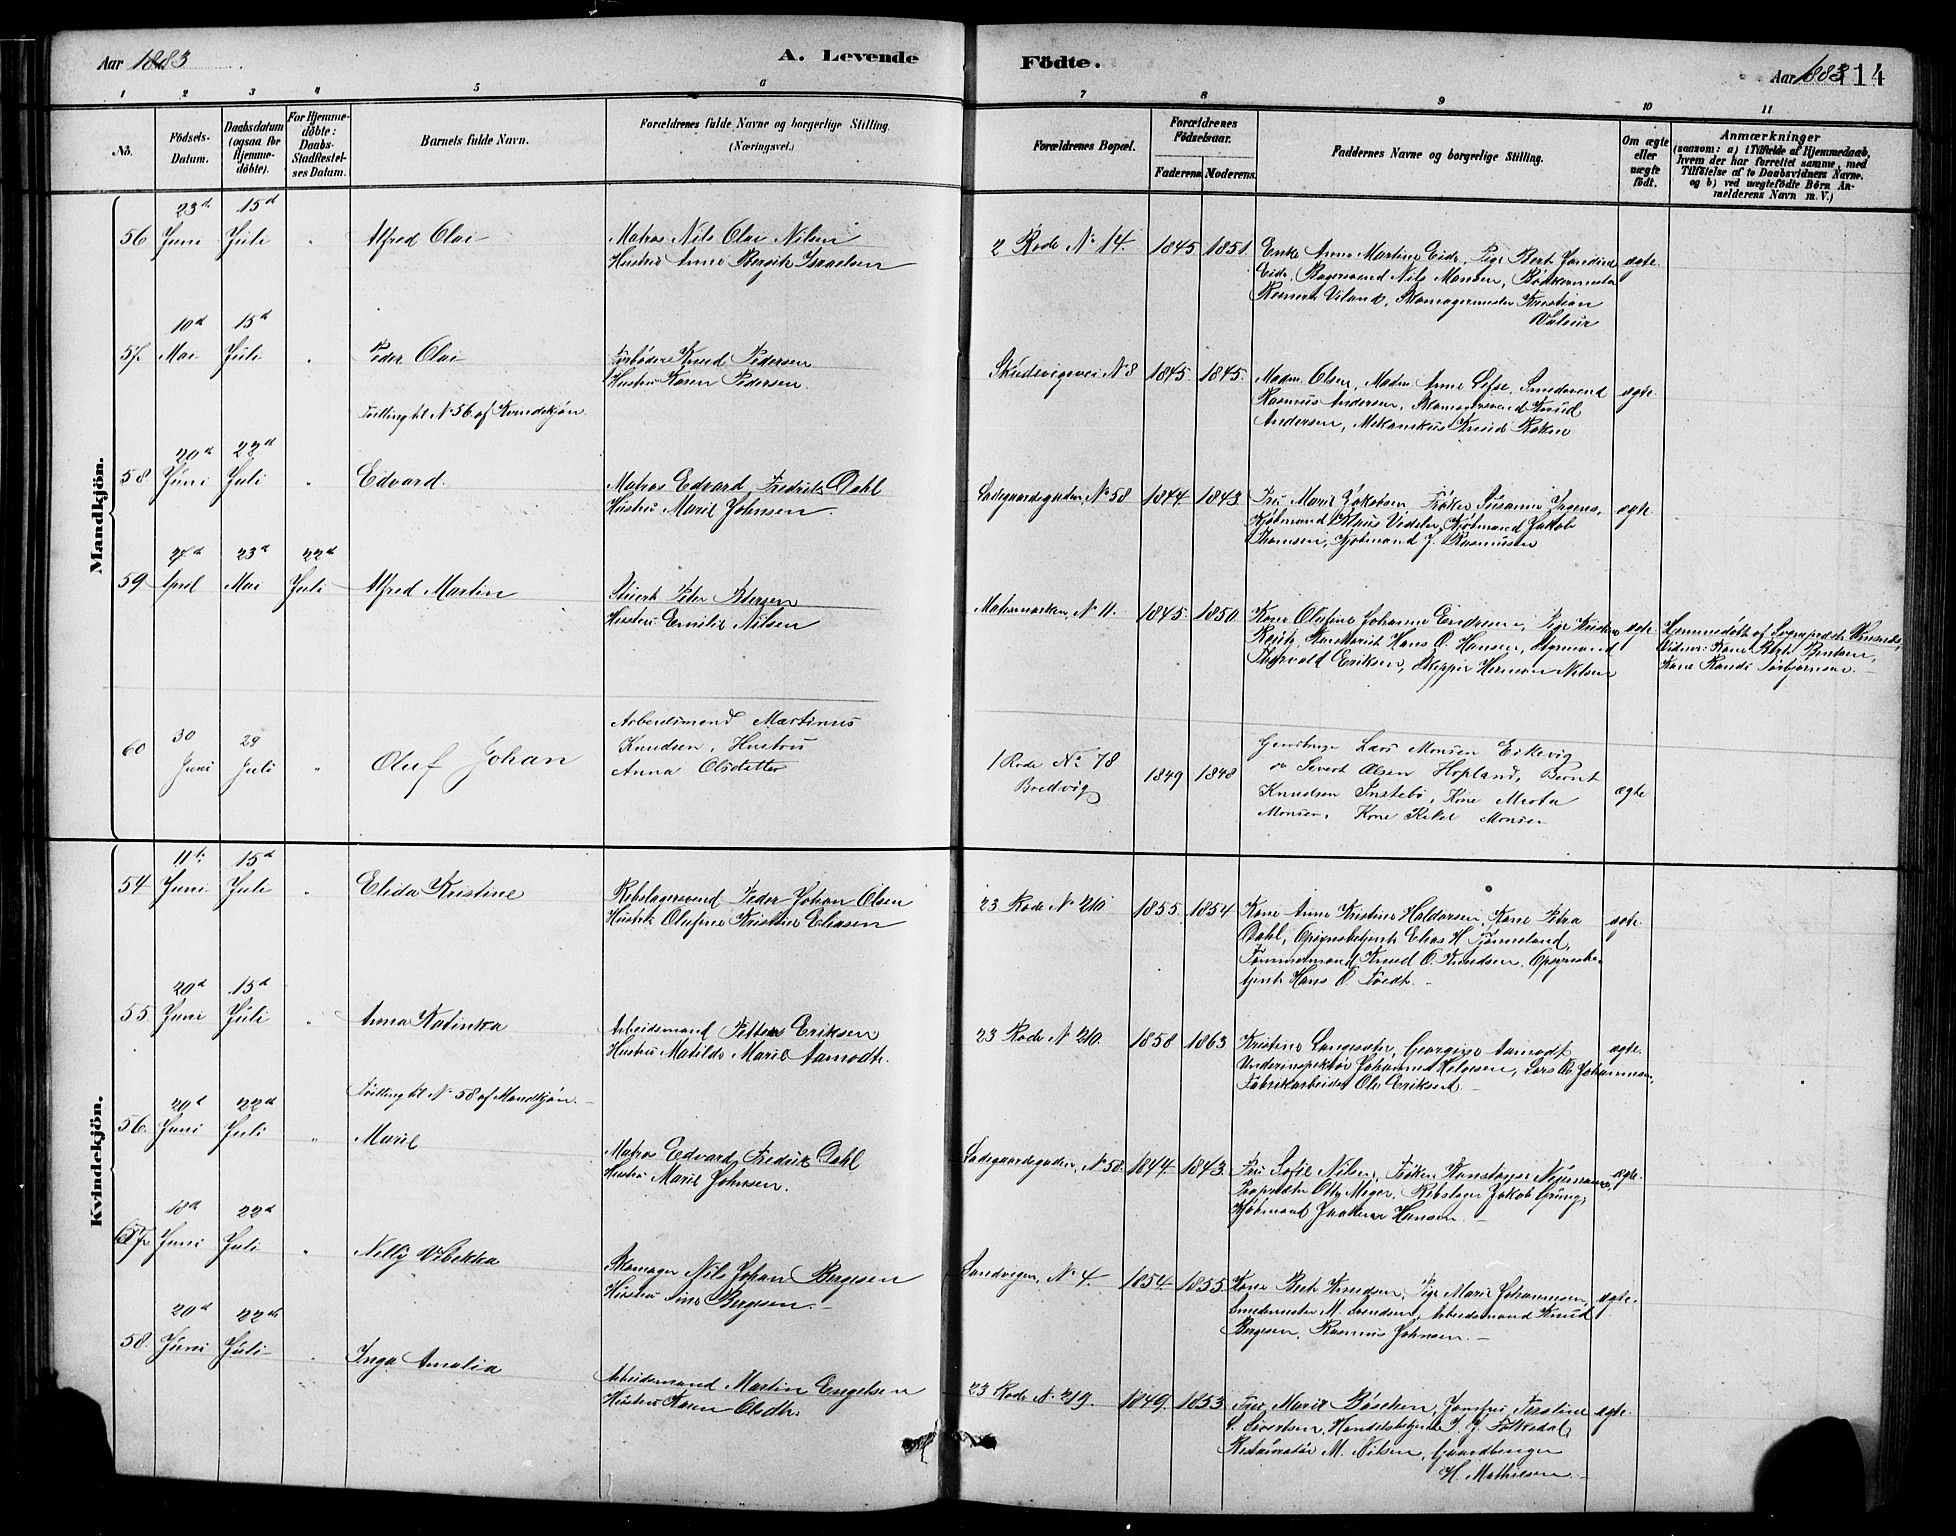 Aar 1883
A. Levende
Födte.
Aar 1883 114
1 2 3 4 5 6 7 8 9 10 11
No.
Födsels-
Datum.
Daabsdatum
(ogsaa for
Hjemme-
döbte).
For Hjemme-
döbte:
Daabs-
Stadfæstel-
ses Datum.
Barnets fulde Navn.
Forældrenes fulde Navne og borgerlige Stilling.
(Næringsvei.)
Forældrenes Bopæl.
Forældrenes
Födselsaar.
Faderens. Moderens.
Faddernes Navne og borgerlige Stilling.
Om ægte
eller
uægte
födt.
Anmærkninger
(saasom: a) i Tilfælde af Hjemmedaab,
hvem der har forrettet samme, med
Tilföielse af to Daabsvidners Navne,
og b) ved uægtefödte Börn An-
melderens Navn m. V.)
Mandkjön.
56 23de Juni 15de Juli " Alfred Olai
Matros Nils Olai Nilsen
Hustru Anne Bergitte Israelsen
2 Rode No 14. 1845 1851.
Enke Anne Martine Eide, Pige Bert Jandine
Eide, Bagersvend Nils Monsen, Bödkermester
Viland, Skomagermester Kristian
ægte.
57 10de Mai 15de Juli " Peder Olai
Knud Pedersen
Hustru Karen Pedersen.
Skudevigsvei No 8 1845. 1845.
Madm. Olsen, Madm. Anne Smedsvend
Rasmus Andersen, Skomagersvend Knud
Andersen, Mekanikus Knud
ægte.
Tvilling til No 56 af Kvindekjön.
58 20de Juni 22de Juli " Edvard.
Matros Edvard Fredrik Dahl
Hustru Marie Johnsen.
Ladegaardsgaden, No 58 1844. 1843.
Fru Marie Jakobsen Fröken Susanne Irgens,
Kjöbmand Klaus Kjöbmand Jakob
Thomsen, Kjöbmand J. Rasmussen
ægte.
59 April 23de Mai 22de Juli Alfred Martin
Stuert Peter Petersen
Hustru Emilie Nilsen
No 11. 1845. 1850.
Kone Olufine Johanne Pige
Hans O. Hansen, Styrmand
Thorvald Eriksen, Skipper Herman Nilsen
ægte.
Hjemmedöbt af
Vidner: Kone Bertsen,
Kone Randi Torbjörnsen.
60 30 Juni 29 Juli " Oluf Johan
Arbeidsmand Martinus
Knudsen, Hustru
Anna Olsdatter
1 Rode No 78
Bredvig
1849 1848
Lars Monsen Eikevig
og Severt Olsen Hopland, Bernt
Knudsen Instebö, Kone Marta
Monsen, Kone Rakel Monsen
ægte
Kvindekjön.
54 11te Juni 15de Juli " Elida Kristine
Rebslagersvend Peder Johan Olsen
Hustru Olufine Kristine Eliasen
23 Rode No 210 1855. 1854.
Kone Anne Kristine Haldorsen, Kone Petra
Dahl, Opsynsbetjent Elias H. Tjönneland,
Tömmermand Knud O. Knudsen, Opsynsbe-
tjent Hans O. Tvedt.
ægte.
55 20de Juni 15de Juli " Anna Katinka
Arbeidsmand Petter Eriksen
Hustru Matilde Marie Aamodt.
23 Rode No 210. 1858 1863.
Kristine Langesæter, Georgine Aamodt
Underinspektör Johannes Helgesen, Lars O. Johannesen,
Fabrikarbeider Ole Eriksen
ægte.
Tvilling til No 58 af Mandkjön.
56. 20de Juni 22de Juli " Marie
Matros Edvard Fredrik Dahl
Hustru Marie Johnsen.
Ladegaardsgaden, No 58. 1844. 1843.
Fru Sofie Nilsen, Fröken Konstanse
Otto Meyer, Rebslager Jakob Grung,
Kjöbmand Hansen.
ægte.
57 Juni 22de Juli " Nelly Vibekka
Skomager Nils Johan Bergesen
Hustru Sine Bergesen.
Sandvigen, No 4. 1854. 1855.
Kone Bert Knudsen, Pige Marie Johannesen,
Smedemester M. Svendsen, Arbeidsmand Knud
Bergesen, Rasmus Johnsen.
ægte.
58. 20de Juni 22de Juli " Inga Amalia
Arbeidsmand Martin Engelsen
Hustru Karen Olsdtr.
23 Rode No 219. 1849. 1853.
Fru Marie Böschen, Jomfru
S. Sivertsen, Handelsbetjent J. J. Folkedal,
Restauratör M. Nilsen, Gaardbruger
H. Mathiesen.
ægte.